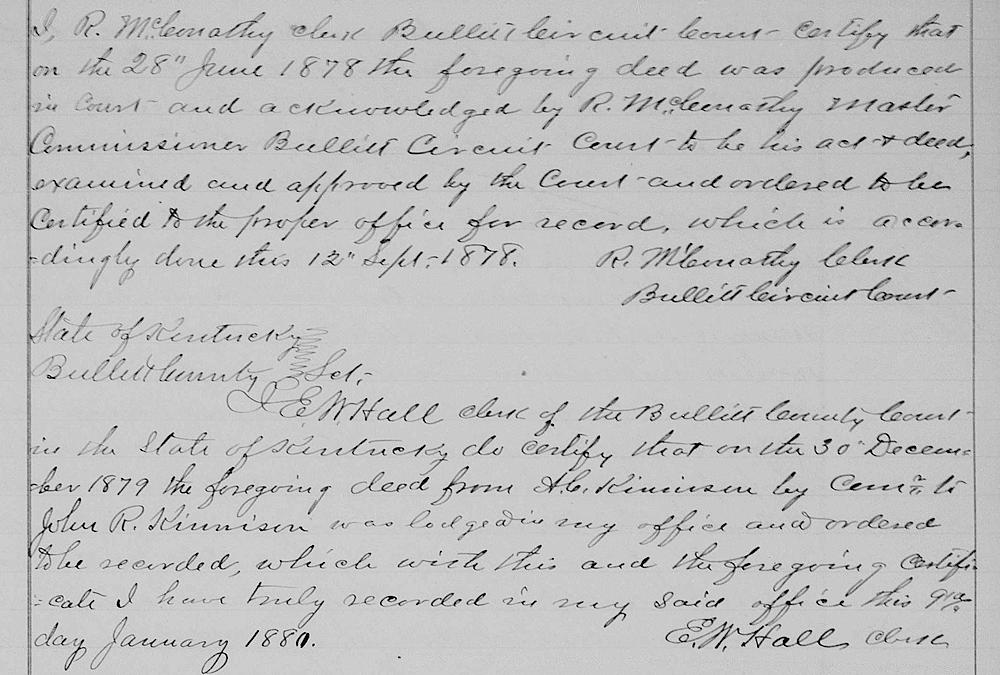 I, R. McConathy clerk Bullitt Circuit Court certify that
on the 28" June 1878 the foregoing deed was produced
in Court and acknowledged by R. McConathy Master
Commissioner Bullitt Circuit Court to be his act & deed,
examined and approved by the Court and ordered to be
Certified to the proper office for record, which is accor-
-dingly done this 12" Sept. 1878. R. McConathy Clerk
Bullitt Circuit Court
State of Kentucky
Bullitt County Sct,
I E. W. Hall clerk of the Bullitt County Court
in the State of Kentucky do certify that on the 30" Decem-
-ber 1879 the foregoing deed from A.C. Kinnison by Comr. to
John R. Kinnison was lodged in my office and ordered
to be recorded, which with this and the foregoing certifi-
-cate I have truly recorded in my said office this
day January E.W. Hall clerk